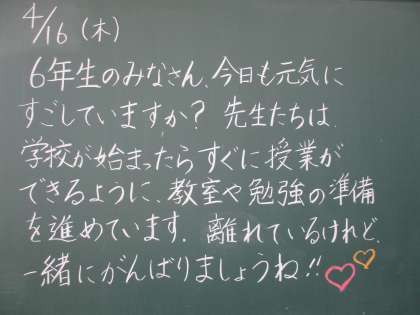 4/16(木)
6年生のみなさん、今日も元気に
すごしていますか? 先生たちは
学校が始まったらすぐに授業が
できるように、教室や勉強の準備
を進めています. 離れているけれど、
一緒にがんばりましょうね!!